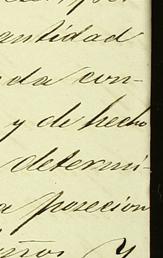 antidad
da con-
y de hecho
determi-
a posecion
años y